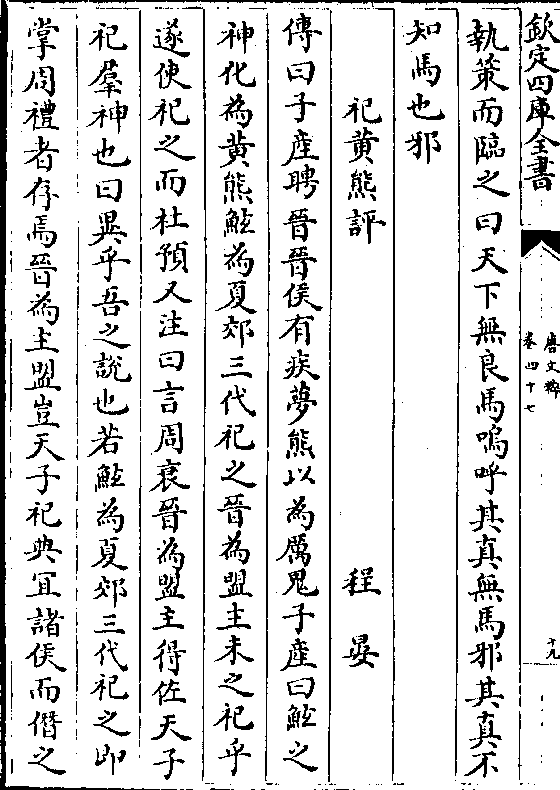 欽定四庫全書
唐文粹
卷四十七
十九
執䇿而臨之曰天下無良馬嗚呼其真無馬邪其真不
知馬也邪
祀黄熊評
程晏
傳曰子産聘晉晉侯有疾夢熊以為厲鬼子産曰鮌之
神化為黄熊鮌為夏郊三代祀之晉為盟主未之祀乎
遂使祀之而杜預又注曰言周衰晉為盟主得佐天子
祀羣神也曰異乎吾之說也若鮌為夏郊三代祀之即
掌周禮者存焉晉為主盟豈天子祀典宜諸侯而僭之